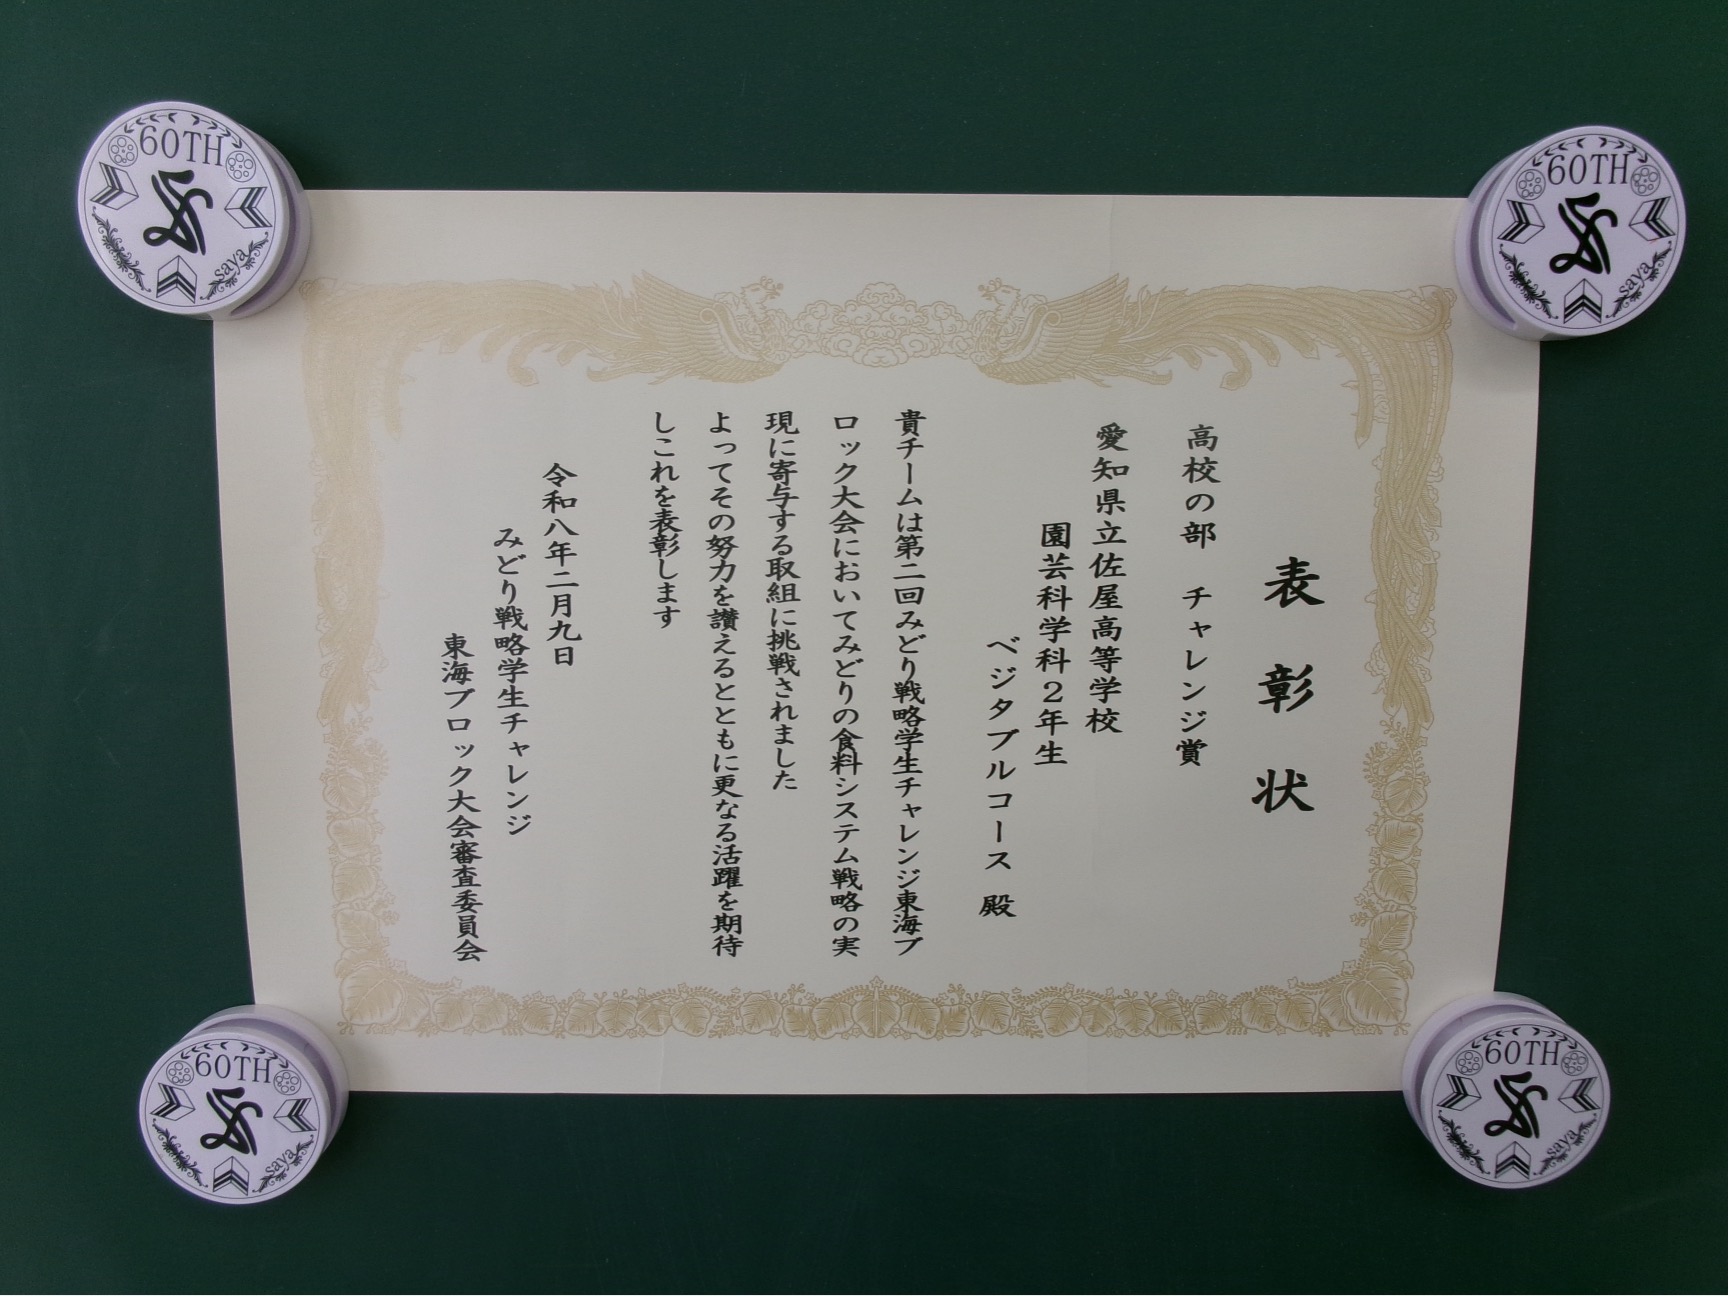 表彰状
高校の部 チャレンジ賞
愛知県立佐屋高等学校
園芸科学科2年生
ベジタブルコース 殿
貴チームは第二回みどり戦略学生チャレンジ東海ブ
ロック大会においてみどりの食料システム戦略の実
現に寄与する取組に挑戦されました
よってその努力を讃えるとともに更なる活躍を期待
しこれを表彰します
令和八年二月九日
みどり戦略学生チャレンジ
東海ブロック大会審査委員会
60TH
saya
60TH
saya
60TH
saya
60TH
saya